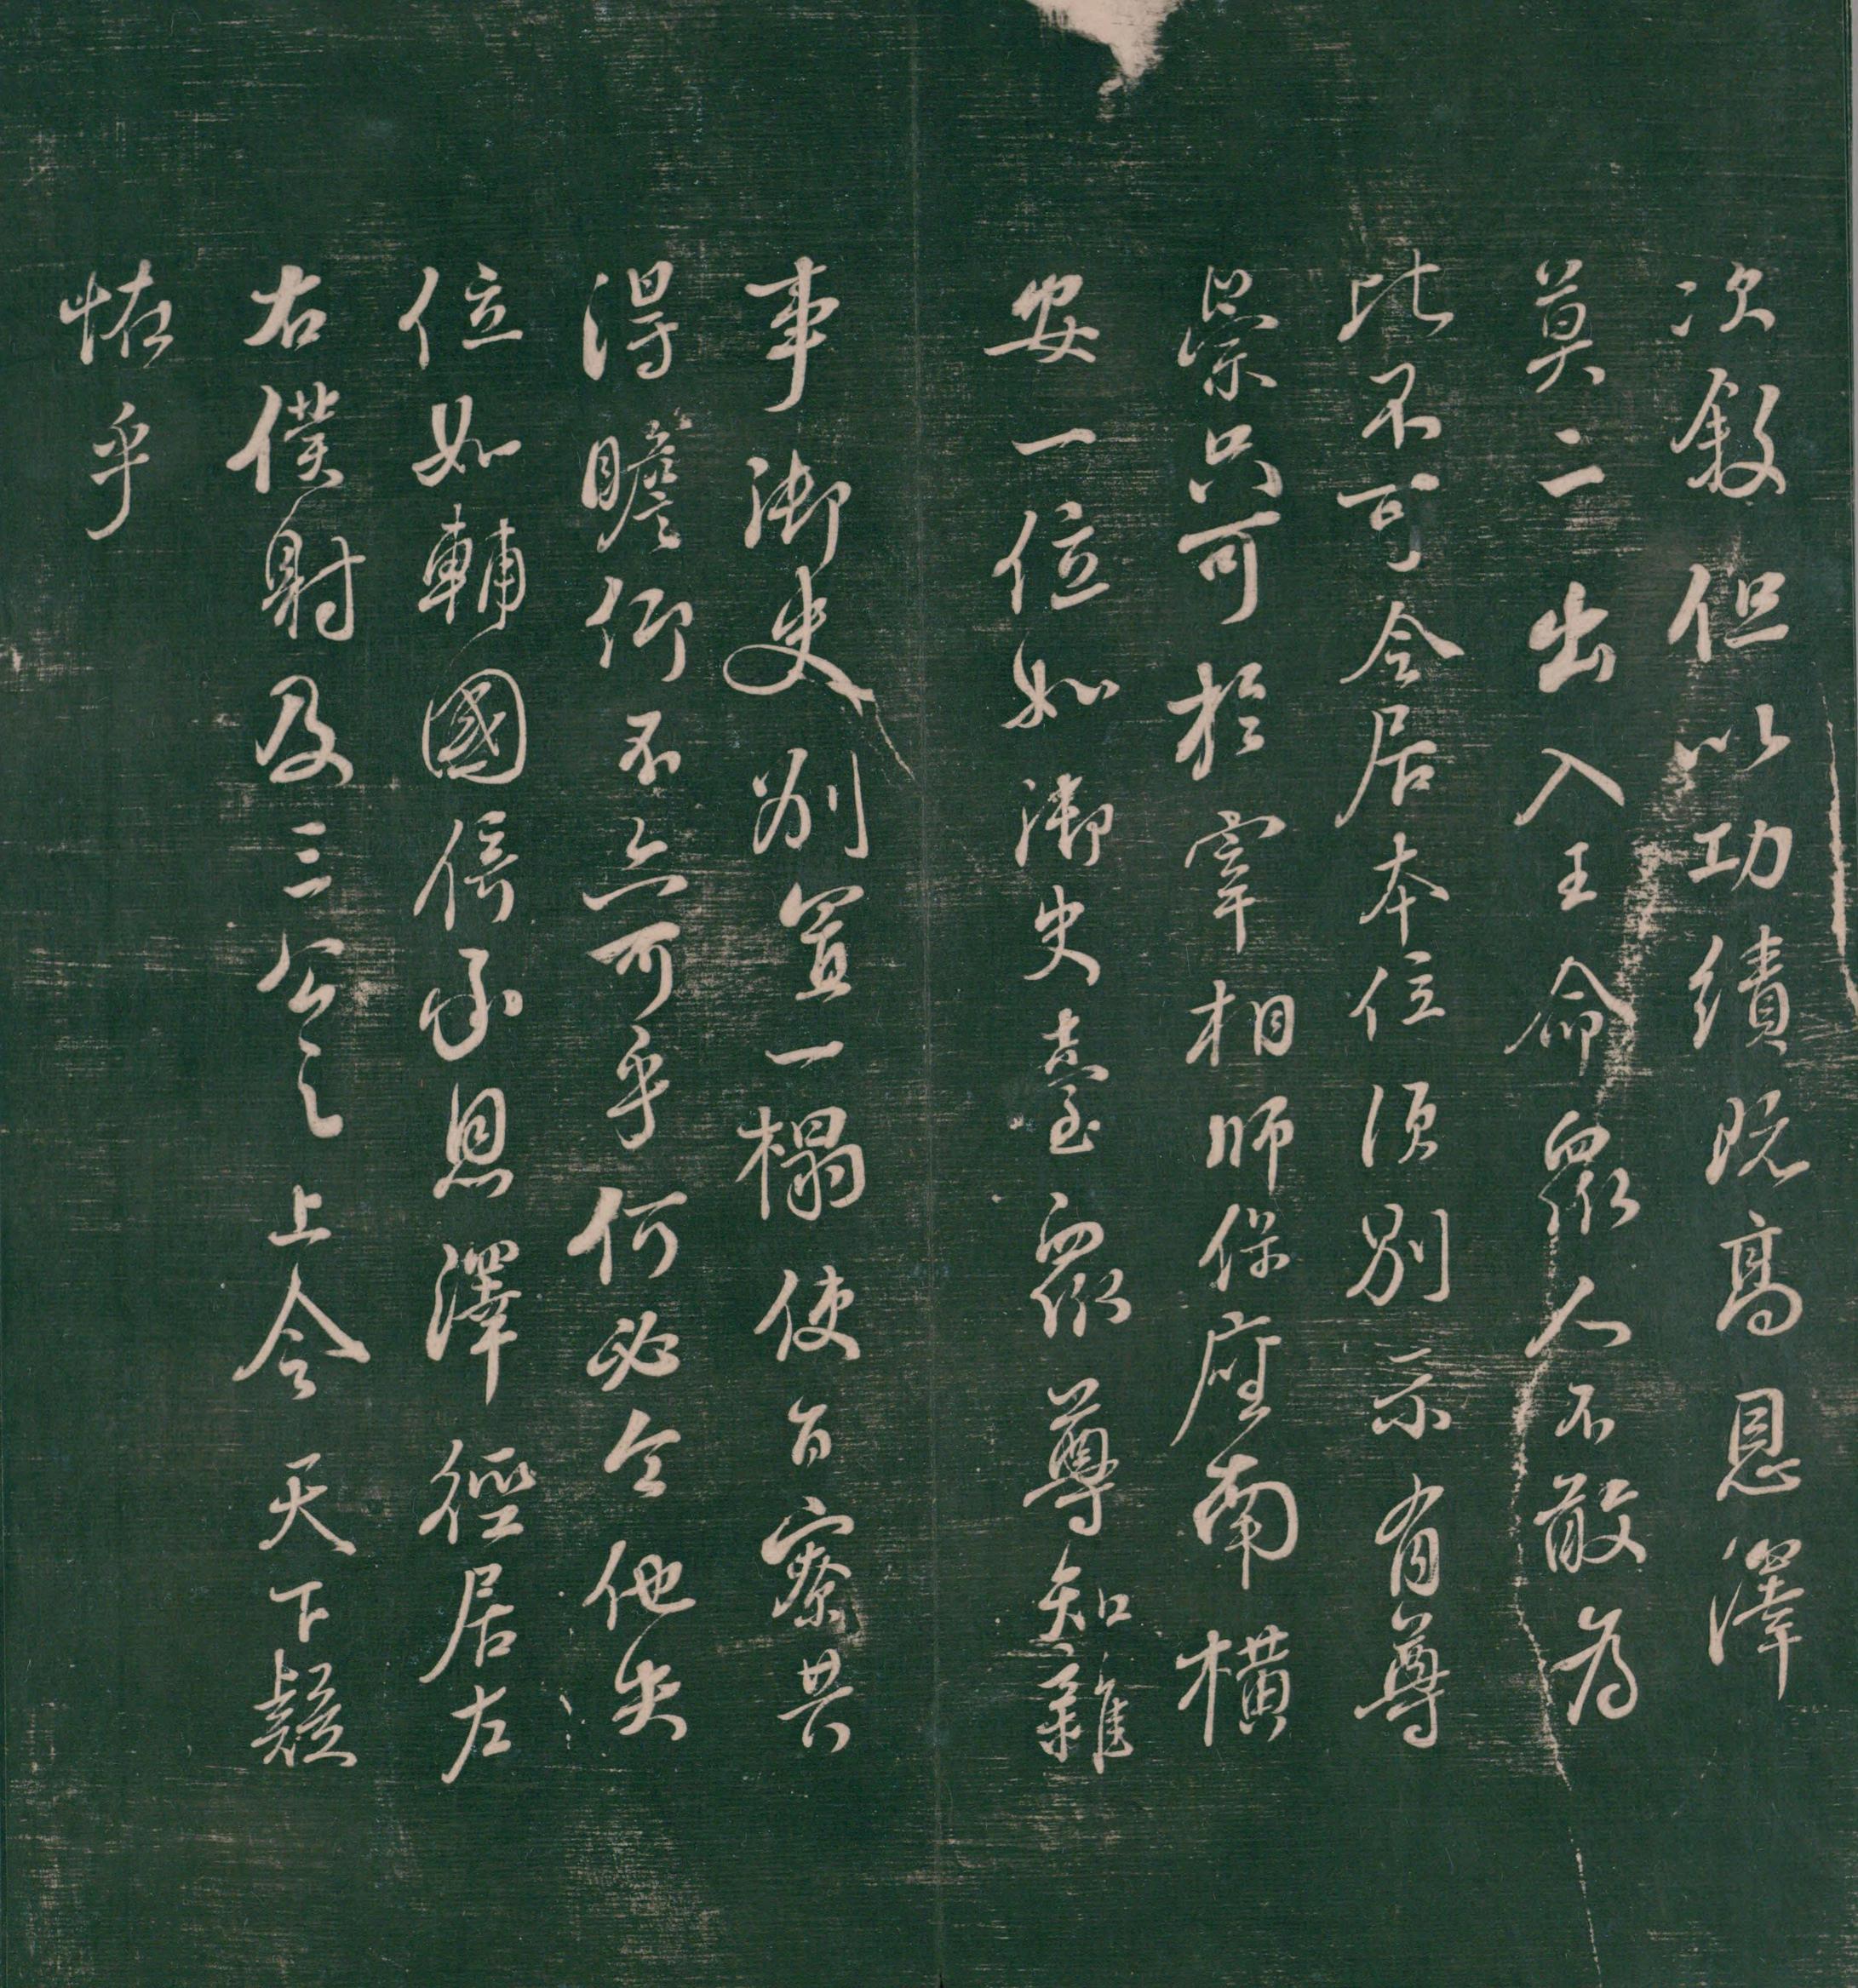 次敘但以功績既高恩澤
莫二出入王命眾人不敢為
比不可令居本位須別示有尊
崇只可於宰相師保座南橫
安一位如御史臺眾尊知雜
事御史別置一榻使百寮共
得瞻仰不亦可乎何必令他失
位如輔國倚承恩澤徑居左
右僕射及三公之上令天下疑
怪乎